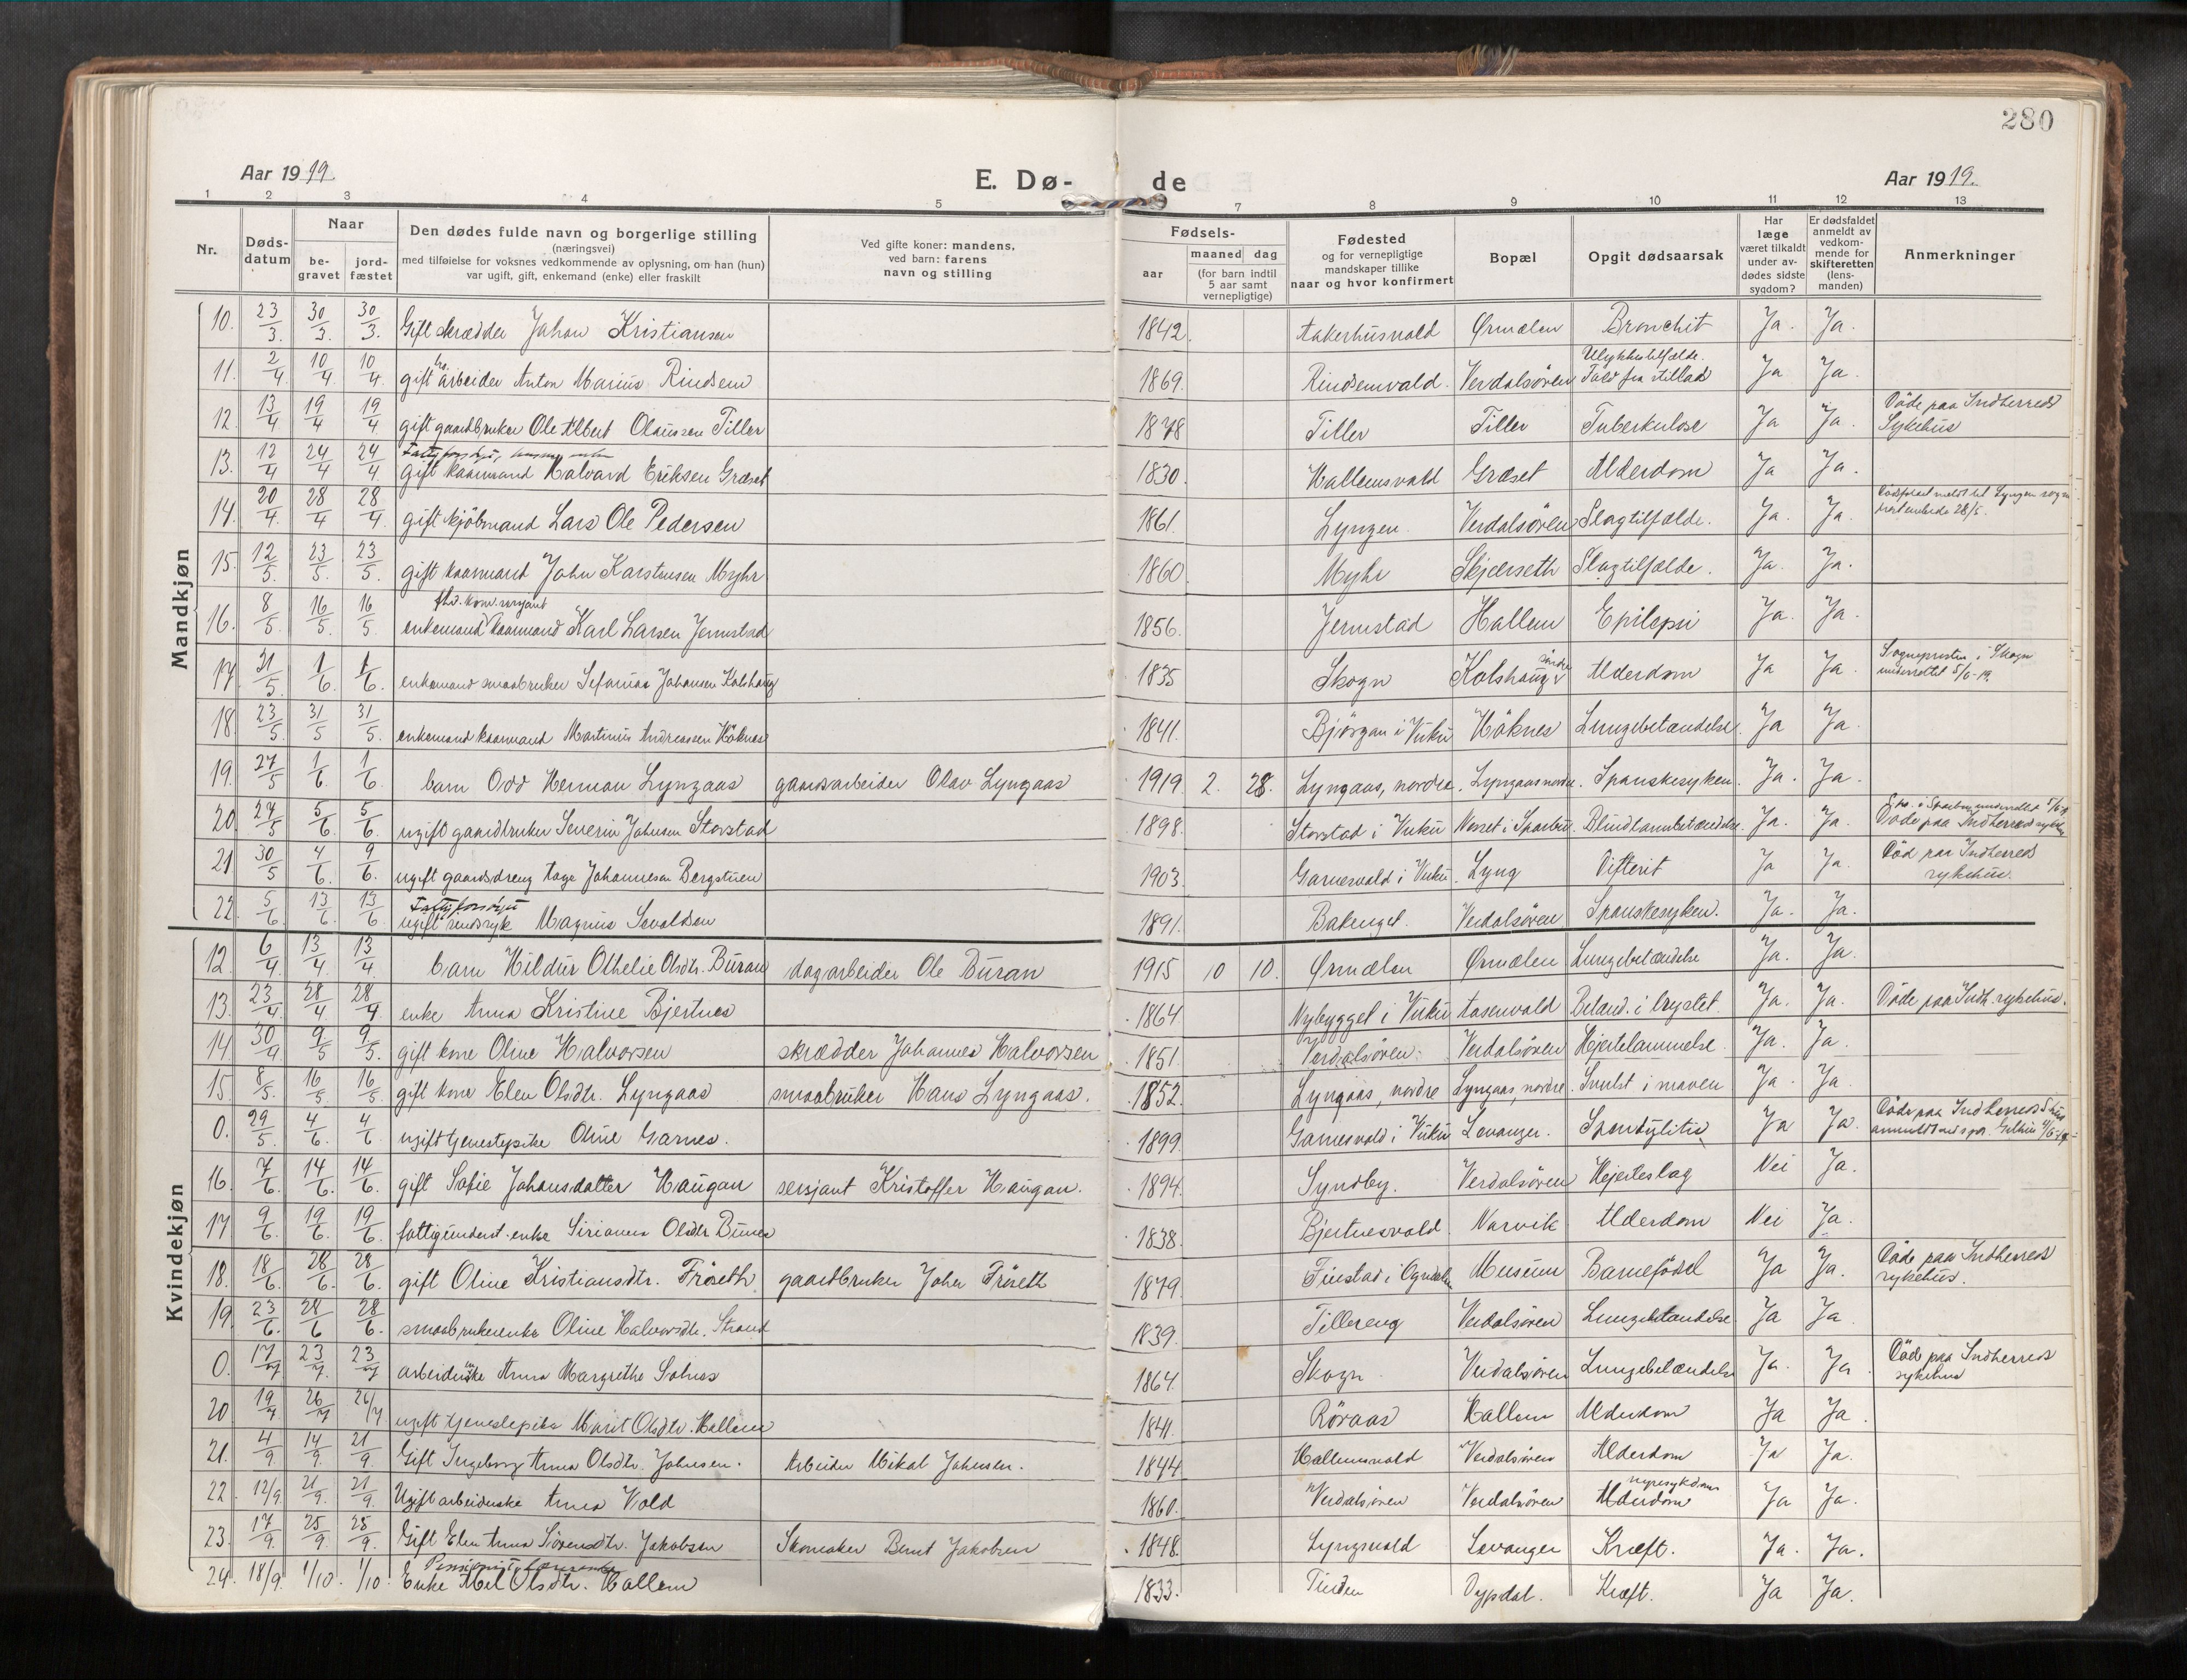 280
Aar 1919. E. Dø- de Aar 1919.
1 2 3 4 5 7 8 9 10 11 12 13
Nr. Døds-datum Naar be-gravet jord-fæstet Den dødes fulde navn og borgerlige stilling (næringsvei) med tilføielse for voksnes vedkommende av oplysning, om han (hun) var ugift, gift, enkemand (enke) eller fraskilt Ved gifte koner: mandens, ved barn: farens navn og stilling Fødsels- aar maaned dag (for barn indtil 5 aar samt vernepligtige) Fødested og for vernepligtige mandskaper tillike naar og hvor konfirmert Bopæl Opgit dødsaarsak Har læge været tilkaldt under av-dødes sidste sygdom? Er dødsfaldet anmeldt av vedkom-mende for skifteretten (lens-manden) Anmerkninger
Mandkjøn
10. 23/3. 30/3. 30/3. Gift skrædder Johan Kristiansen 1842. Aakerhusvald Ørmælen Bronchit Ja. Ja.
11. 2/4 10/4. 10/4. gift arbeider Anton Marius Rindsem 1869. Rindsemvald. Verdalsøren Ulykkestilfælde. Fald fra stillas Ja Ja.
12. 13/4 19/4 19/4 gift gaardbruker Ole Albert Olaussen Tiller 1878 Tiller Tiller Tuberkulose Ja Ja. Døde paa Indherreds Sykehus
13. 12/4 24/4 24/4 gift kaarmand Halvard Eriksen Græset 1830. Hallemsvald Græset Alderdom Ja Ja.
14. 20/4. 28/4 28/4. gift kjøbmand Lars Ole Pedersen 1861. Lyngen. Verdalsøren Slagtilfælde. Ja. Ja. Dødsfaldet meldt til Lyngen sogneprestembede 28/5.
15. 12/5. 23/5. 23/5. gift kaarmand John Karstensen Myhr 1860. Myhr Skjerseth Slagtilfælde. Ja. Ja.
16. 8/5. 16/5. 16/5. fhv. kom. sersjant enkemand kaarmand Karl Larsen Jermstad 1856. Jermstad Hallem Epilepsi Ja. Ja.
17. 31/5. 1/6. 1/6. enkemand smaabruker Sefanias Johansen Kolshaug 1835 Skogn Kolshaug søndre Alderdom Ja Ja. Sognepresten i Skogn underrettet 5/6-19.
18. 23/5. 31/5 31/5 enkemand kaarmand Martinius Andreassen Høknes 1841. Bjørgan i Vuku Høknes Lungebetændelse. Ja Ja.
19. 27/5 1/6. 1/6 barn Odd Herman Lyngaas gaardsarbeider Olav Lyngaas 1919 2. 28. Lyngaas, nordre. Lyngaas nordre. Spanskesyken. Ja. Ja.
20. 27/5 5/6. 5/6. ugift gaardbruker Severin Johnsen Storstad 1898. Storstad i Vuku Blindtarmbetændelse. Ja. Ja. Døde paa Indherreds sykehus
21. 30/5 4/6. 9/6. ugift gaardsdreng Aage Johannesen Bergstuen 1903. Garnesvald i Vuku. Lyng Difterit Ja Ja. Død paa Indherreds sykehus.
22. 5/6. 13/6 13/6 Fattigforsørget ugift sindssyk Magnus Sevaldsen 1891. Bakenget. Verdalsøren Spanskesyken. Ja. Ja.
Kvindekjøn
12. 6/4 13/4. 13/4. barn Hildur Othelie Olsdtr. Buran dagarbeider Ole Buran 1915 10 10. Ørmælen Ørmælen Lungebetændelse Ja. Ja.
13. 23/4. 28/4 28/4 enke Anna Kristine Bjertnes 1864. Nybygget i Vuku Aasenvald Betænd. i brystet. Ja. Ja. Døde paa Indh. sykehus.
14. 30/4 9/5 9/5. gift kone Oline Halvorsen skrædder Johannes Halvorsen 1851. Verdalsøren. Verdalsøren Hjertelammelse Ja. Ja.
15. 8/5. 16/5. 16/5. gift kone Elen Olsdtr. Lyngaas smaabruker Hans Lyngaas. 1852. Lyngaas, nordre Lyngaas, nordre. Svulst i maven Ja. Ja.
0. 29/5 4/6. 4/6 ugift tjenestepike Oline Garnes. 1899. Garnesvald i Vuku Levanger. Spondylitis Ja Ja. Døde paa Indherreds S.hus
16. 7/6. 14/6. 14/6. gift Sofie Johansdatter Haugan sersjant Kristoffer Haugan. 1894. Syndby. Verdalsøren Hjerteslag Nei Ja.
17. 9/6. 19/6 19/6. fattigunderst. enke Sirianna Olsdtr Bunes 1838. Bjertnesvald Narvik Alderdom Nei Ja.
18. 18/6. 28/6. 28/6. gift Oline Kristiansdtr. Frøseth gaardbruker John Frøseth 1879. Finstad i Ogndalen Museum Barnefødsel Ja Ja. Døde paa Indherreds sykehus.
19. 23/6. 28/6 28/6. smaabrukerenke Oline Halvorsdtr. Strand 1839. Tillereng Verdalsøren Lungebetændelse Ja Ja.
0. 17/7 23/7. 23/7 arbeiderske Anna Margrethe Solnes 1864. Skogn Verdalsøren Lungebetændelse Ja. Ja. Døde paa Indherreds sykehus
20 19/7 26/7 26/7 ugift tjenestepike Marit Olsdtr. Hallem 1841. Røraas Hallem Alderdom Ja Ja.
21. 4/9 14/9. 21/9. Gift Ingeborg Anna Olsdtr. Johnsen. Arbeider Mikal Johnsen. 1844 Hallemsvald Verdalsøren Alderdom Ja Ja.
22. 12/9. 21/9. 21/9. Ugift arbeiderske Anna Vold 1860. Verdalsøren Verdalsøren Nyresykdom Alderdom Ja Ja.
23. 17/9. 25/9. 25/9. Gift Elen Anna Sørensdtr. Jakobsen Skomaker Bernt Jakobsen 1848. Lyngsvald Levanger Kræft. Ja. Ja.
24. 18/9. 1/10. 1/10. Enke Mel Olsdtr. Hallem 1833. Tinden Dypdal. Kræft. Ja Ja.